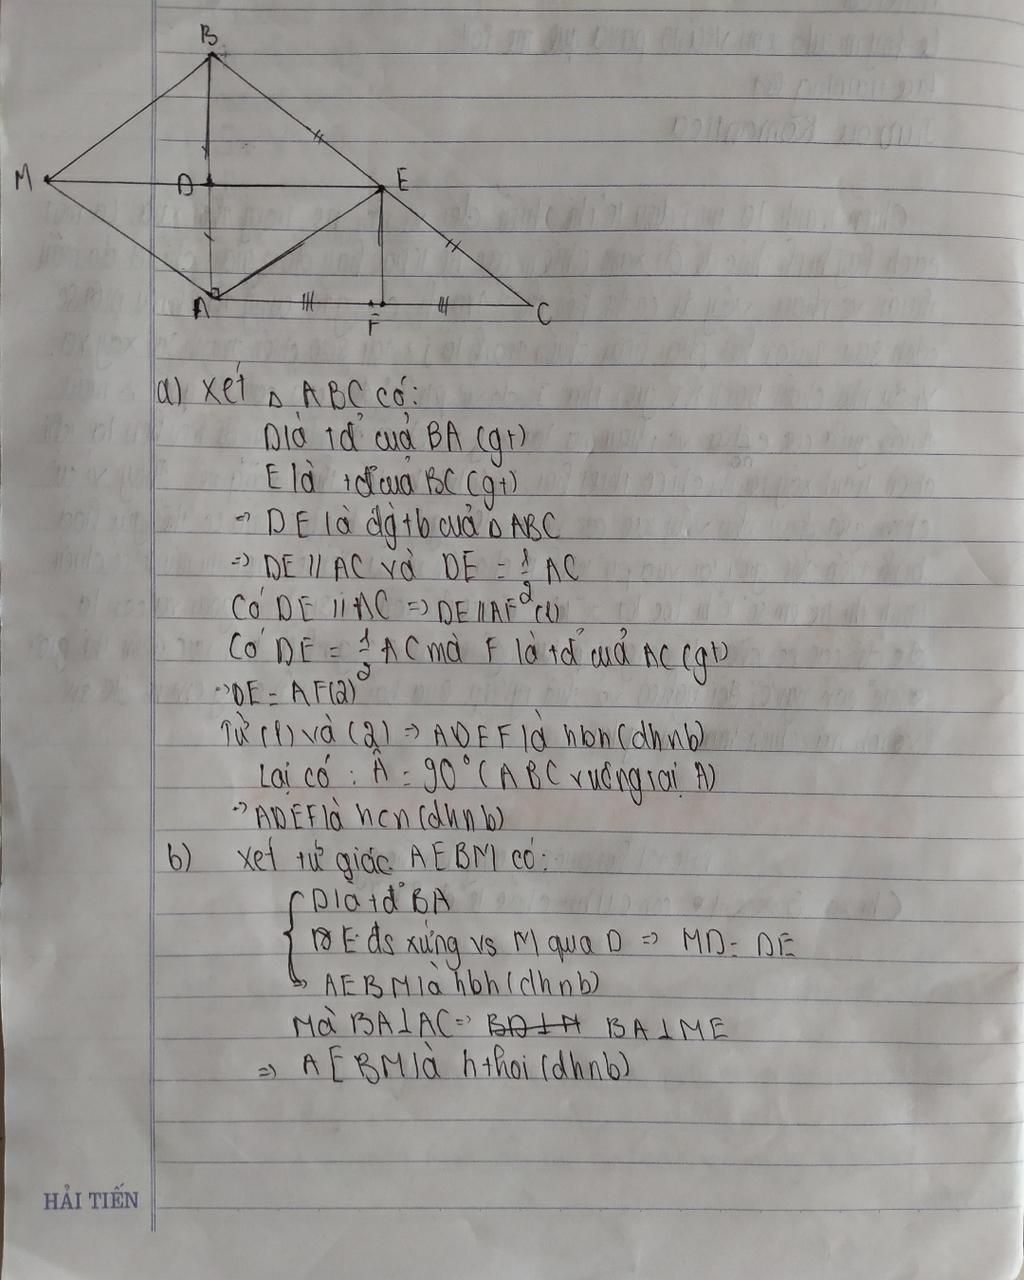 B
M
D
E
A
F
C
a) Xét △ ABC có:
D là tđ' của BA (gt)
E là tđ' của BC (gt)
=> DE là đg tb của △ ABC
=> DE // AC và DE = 1/2 AC
Có DE // AC => DE // AF (1)
Có DE = 1/2 AC mà F là tđ' của AC (gt)
=> DE = AF (2)
Từ (1) và (2) => ADEF là hbh (dhnb)
Lại có : Â = 90° (ABC vuông tại A)
=> ADEF là hcn (dhnb)
b) Xét tứ giác AEBM có:
D là tđ' BA
E đs xứng vs M qua D => MD = DE
=> AEBM là hbh (dhnb)
Mà BA ⊥ AC => BA ⊥ ME
=> AEBM là hthoi (dhnb)
HẢI TIẾN